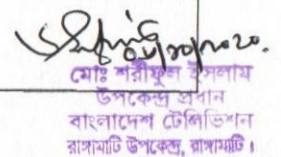 ০৮/১০/২০২০.
মোঃ শরীফুল ইসলাম
উপকেন্দ্র প্রধান
বাংলাদেশ টেলিভিশন
রাঙ্গামাটি উপকেন্দ্র, রাঙ্গামাটি।